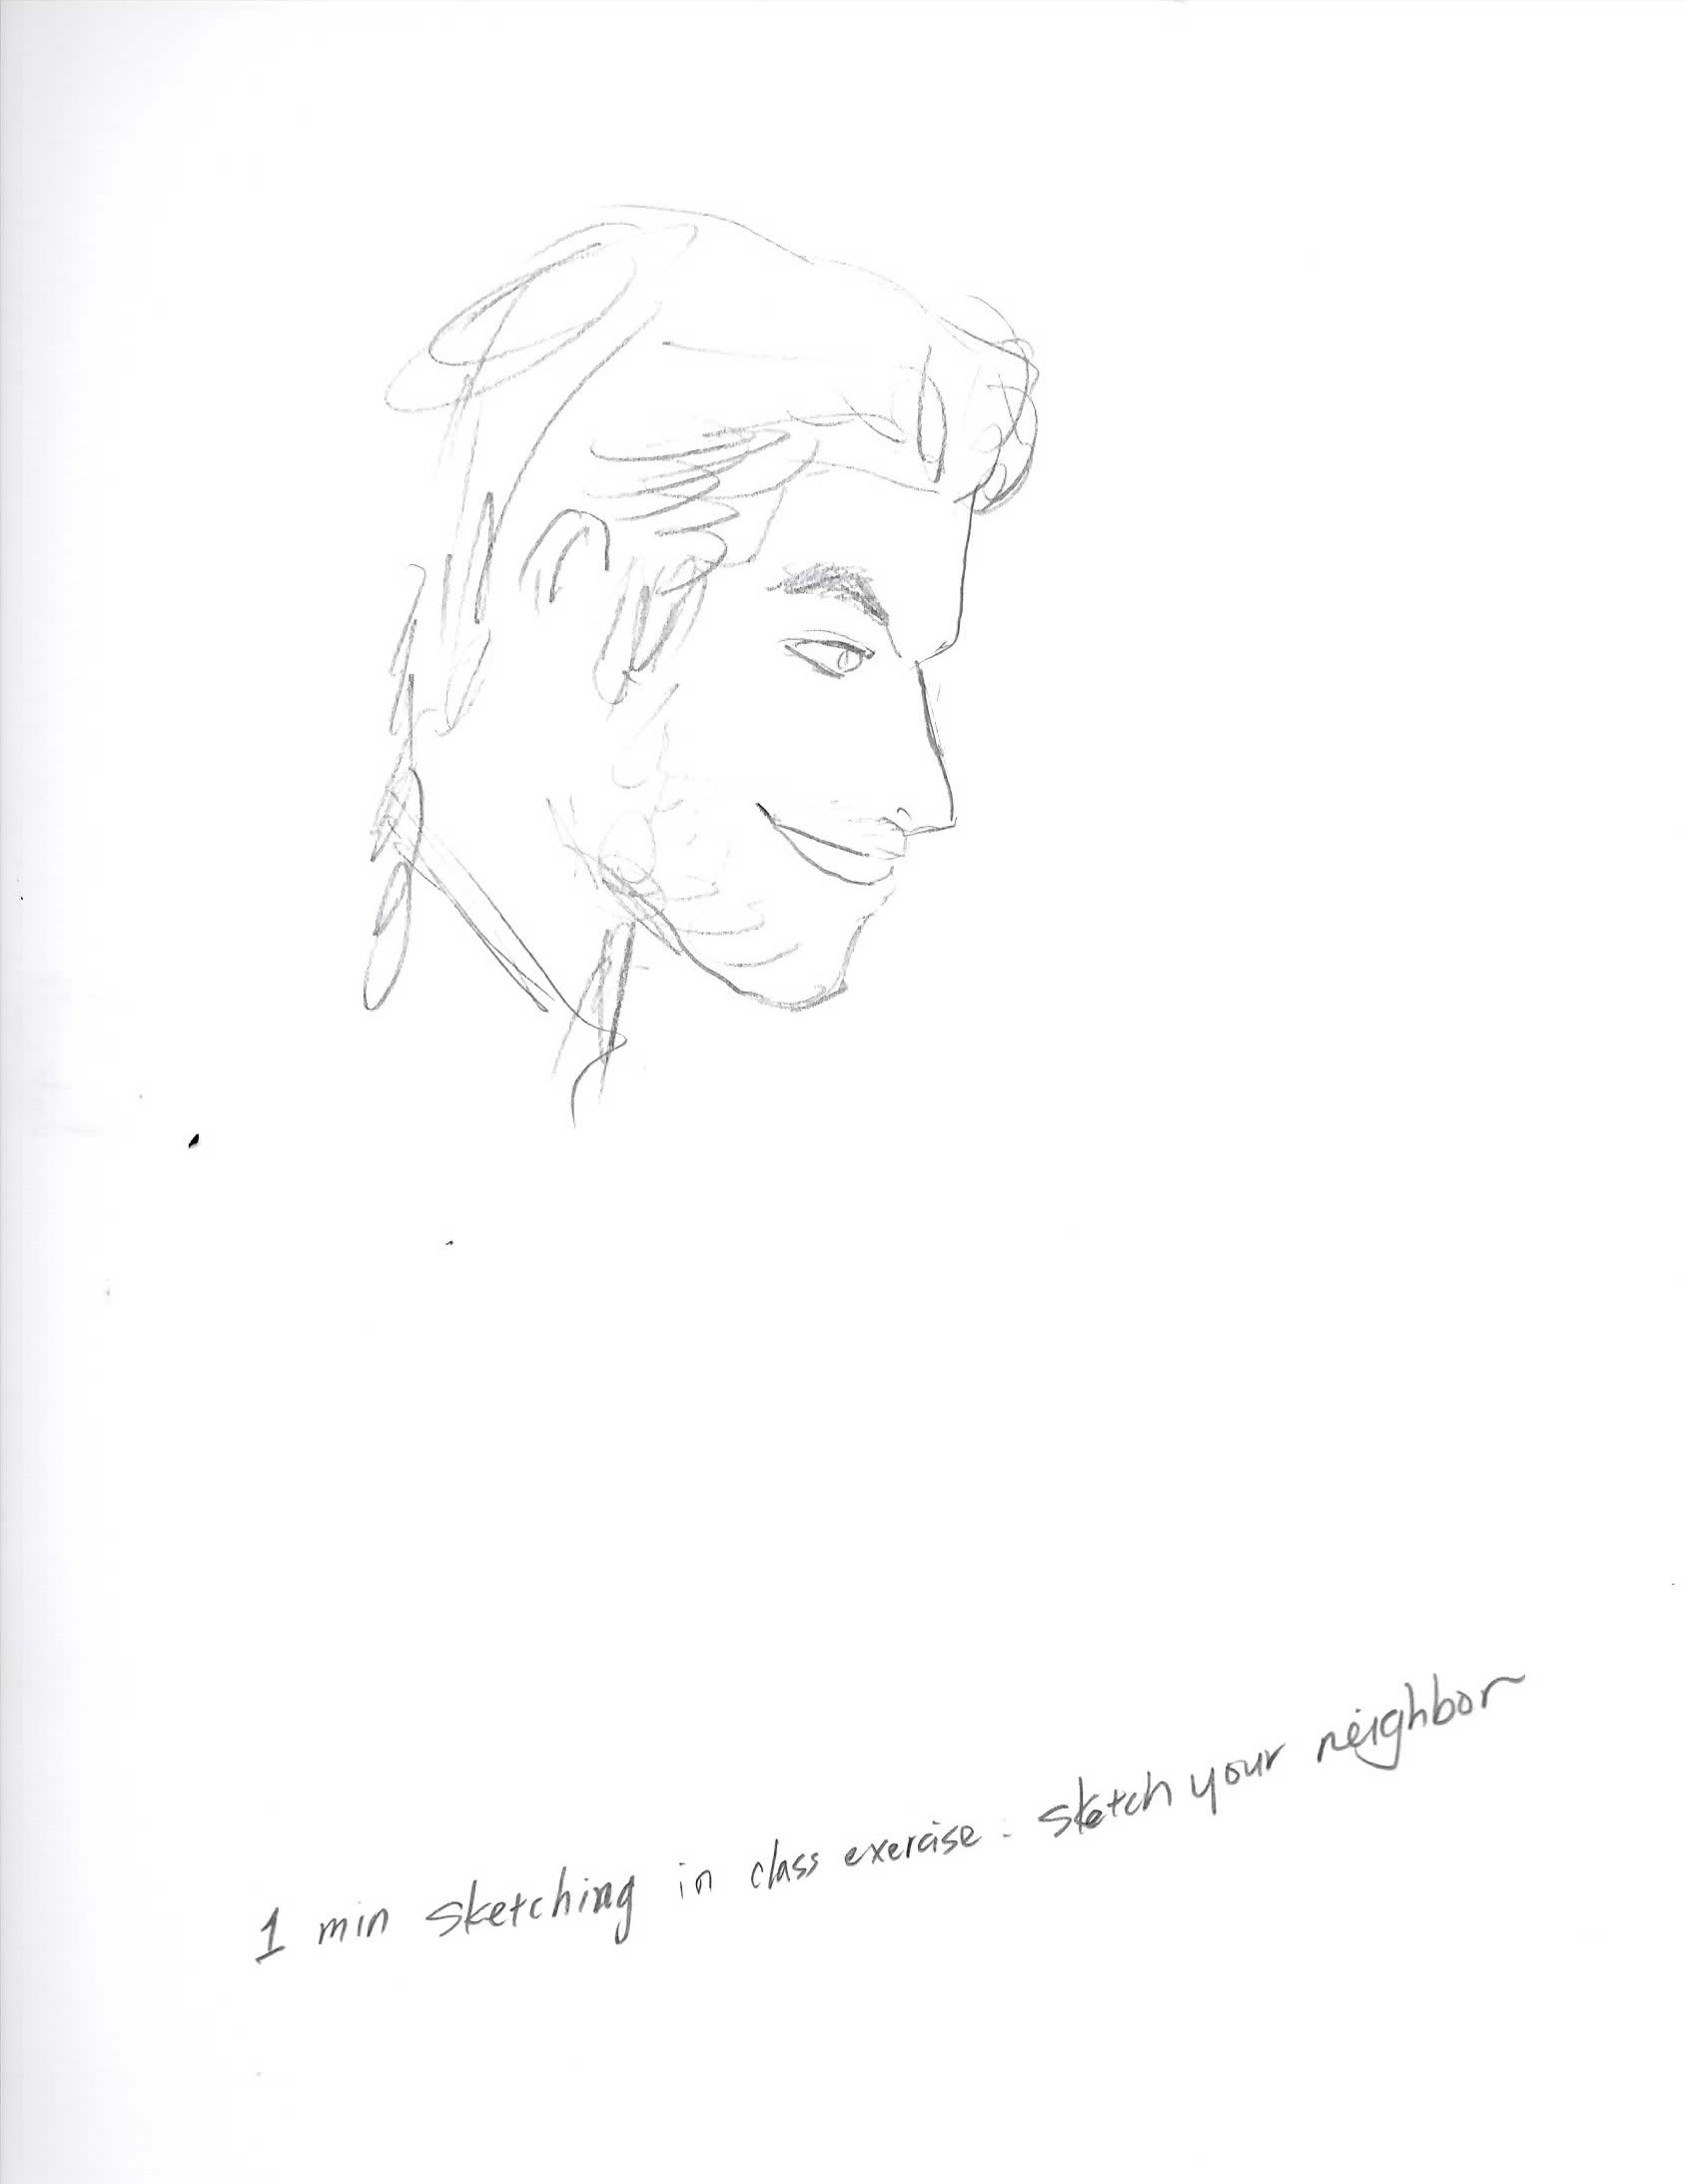 1 min sketching in class exercise : sketch your neighbor